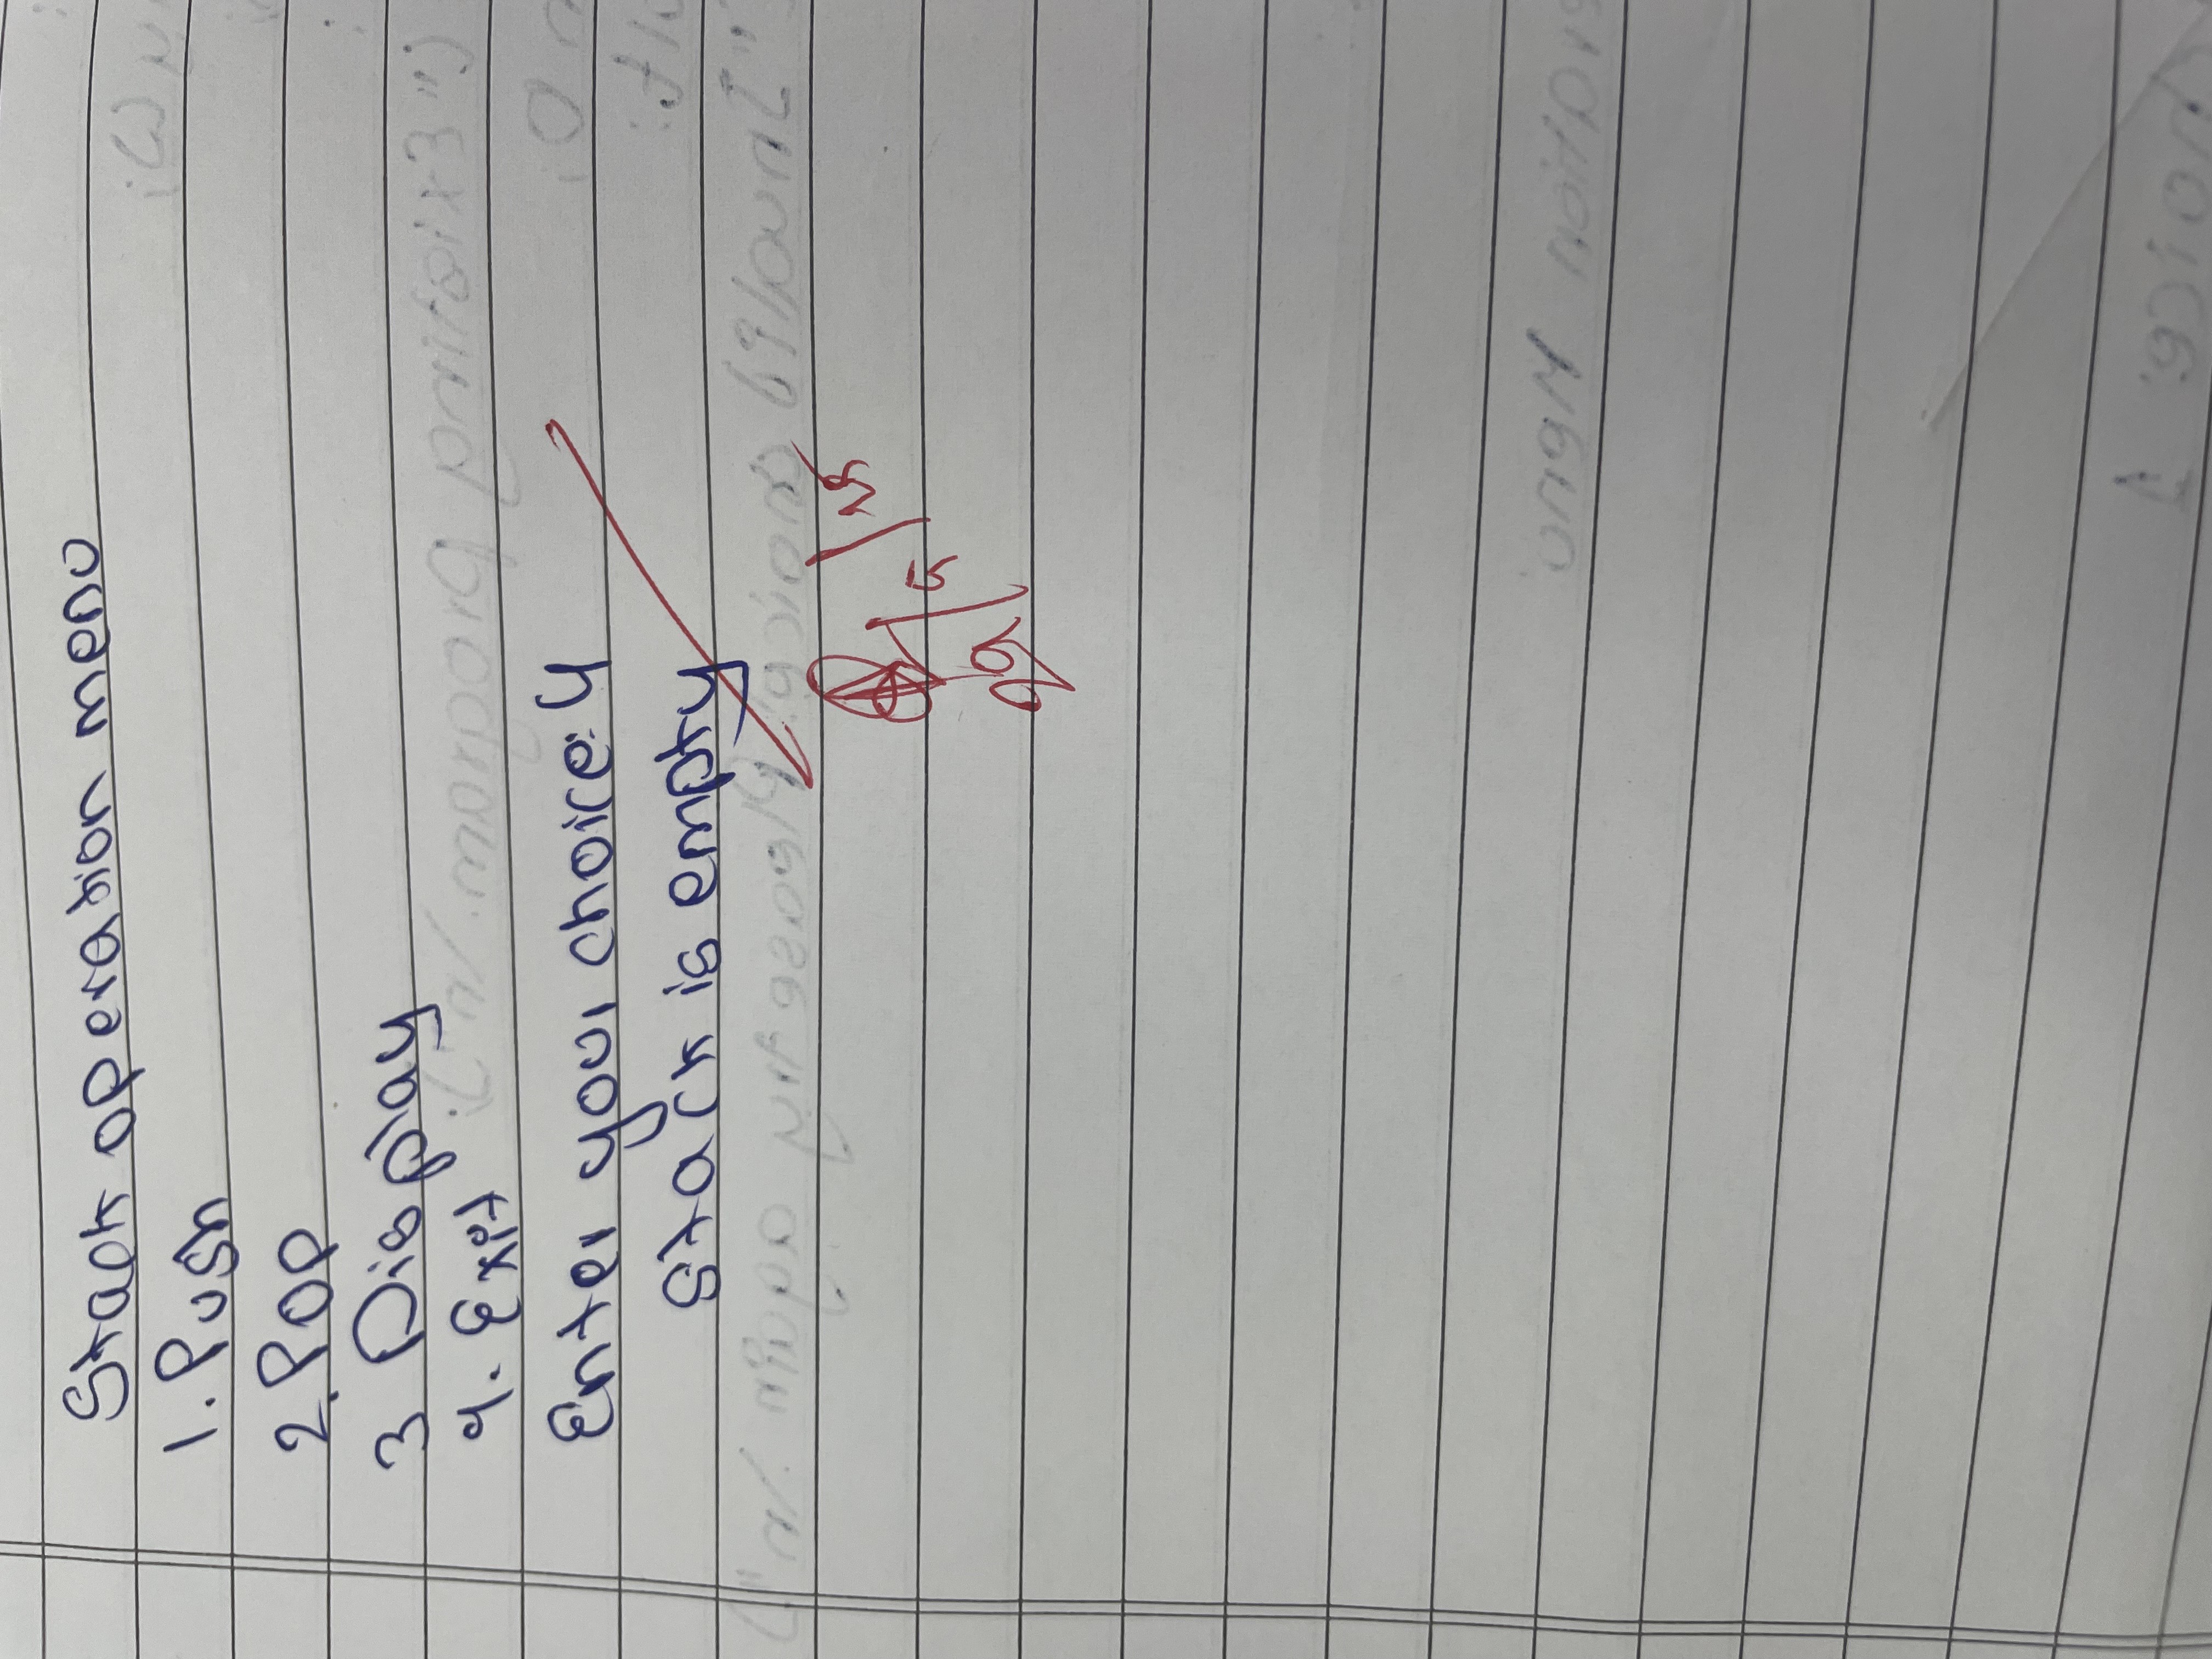 Stack operation meno
1. Push
2. Pop
3 Display
4. Exit
Enter your choice: 4
Stack is empty
29/5/25